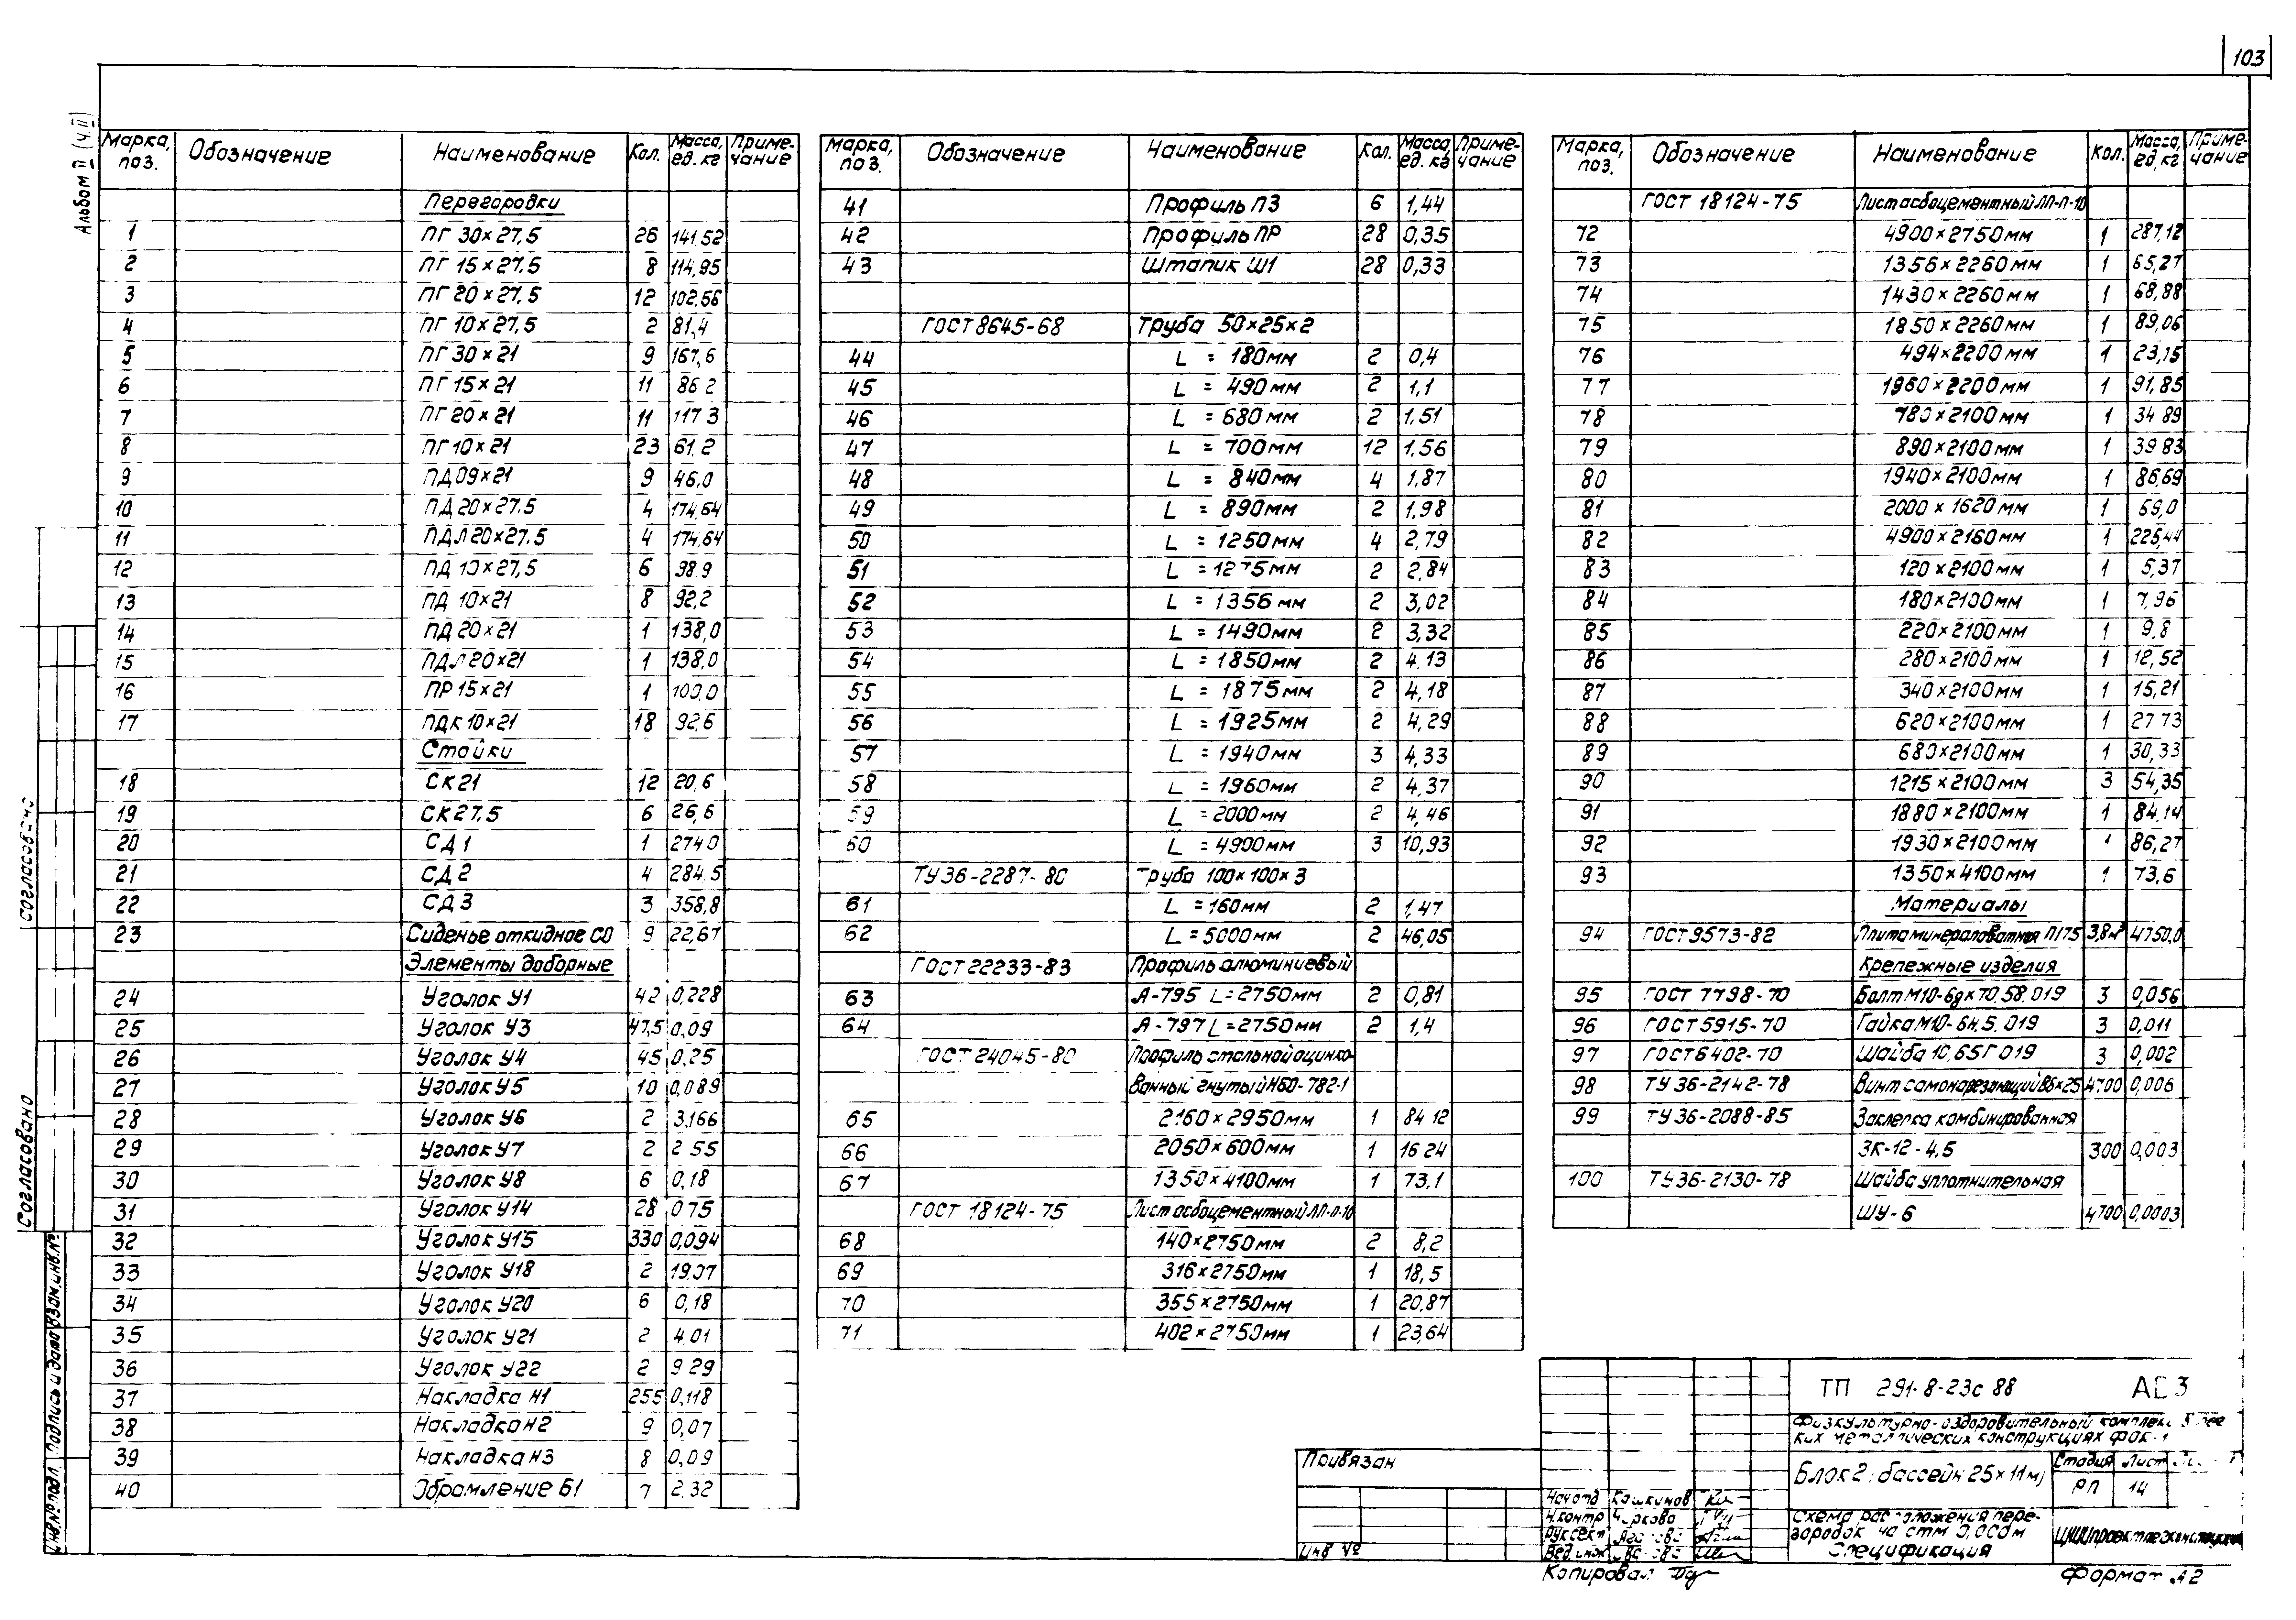 103
Альбом II (ч.II)
Марка, поз. Обозначение Наименование Кол. Масса, ед. кг Приме-чание
Перегородки
1 ПГ 30×27,5 26 141,52
2 ПГ 15×27,5 8 114,95
3 ПГ 20×27,5 12 102,56
4 ПГ 10×27,5 2 81,4
5 ПГ 30×21 9 167,6
6 ПГ 15×21 11 86 2
7 ПГ 20×21 11 117 3
8 ПГ 10×21 23 61,2
9 ПД 09×21 9 46,0
10 ПД 20×27,5 4 174,64
11 ПДЛ 20×27,5 4 174,64
12 ПД 10×27,5 6 98.9
13 ПД 10×21 8 92,2
14 ПД 20×21 1 138,0
15 ПДЛ 20×21 1 138,0
16 ПР 15×21 1 100,0
17 ПДК 10×21 18 92,6
Стойки
18 СК21 12 20,6
19 СК27,5 6 26,6
20 СД1 1 274 0
21 СД2 4 284,5
22 СД3 3 358,8
23 Сиденье откидное СО 9 22,67
Элементы доборные
24 Уголок У1 42 0,228
25 Уголок У3 47,5 0,09
26 Уголок У4 45 0,25
27 Уголок У5 10 0,089
28 Уголок У6 2 3,166
29 Уголок У7 2 2 55
30 Уголок У8 6 0,18
31 Уголок У14 28 0 75
32 Уголок У15 330 0,094
33 Уголок У18 2 19,07
34 Уголок У20 6 0,18
35 Уголок У21 2 4 01
36 Уголок У22 2 9 29
37 Накладка Н1 255 0,118
38 Накладка Н2 9 0,07
39 Накладка Н3 8 0,09
40 Обрамление Б1 7 2,32
Марка, поз. Обозначение Наименование Кол. Масса, ед. кг Приме-чание
41 Профиль П3 6 1,44
42 Профиль ПР 28 0,35
43 Штапик Ш1 28 0,33
ГОСТ 8645-68 Труба 50×25×2
44 L = 180мм 2 0,4
45 L = 490мм 2 1,1
46 L = 680мм 2 1,51
47 L = 700мм 12 1,56
48 L = 840мм 4 1,87
49 L = 890мм 2 1,98
50 L = 1250мм 4 2,79
51 L = 1275мм 2 2,84
52 L = 1356 мм 2 3,02
53 L = 1490мм 2 3,32
54 L = 1850мм 2 4,13
55 L = 1875 мм 2 4,18
56 L = 1925мм 2 4,29
57 L = 1940мм 3 4,33
58 L = 1960мм 2 4,37
59 L = 2000мм 2 4,46
60 L = 4900мм 3 10,93
ТУ36-2287-80 Труба 100×100×3
61 L = 160мм 2 1,47
62 L = 5000мм 2 46,05
ГОСТ 22233-83 Профиль алюминиевый
63 А-795 L=2750мм 2 0,81
64 А-797 L=2750мм 2 1,4
ГОСТ 24045-80 Профиль стальной оцинко-
ванный гнутый Н60-782-1
65 2160×2950мм 1 84 12
66 2050×600мм 1 16 24
67 1350×4100мм 1 73,1
ГОСТ 18124-75 Лист асбоцементный ЛП-П-10
68 140×2750мм 2 8,2
69 316×2750мм 1 18,5
70 355×2750мм 1 20,87
71 402×2750мм 1 23,64
Марка, поз. Обозначение Наименование Кол. Масса, ед, кг Приме-чание
ГОСТ 18124-75 Лист асбоцементный ЛП-П-10
72 4900×2750мм 1 287,12
73 1356×2260мм 1 65,27
74 1430×2260мм 1 68,88
75 1850×2260мм 1 89,06
76 494×2200мм 1 23,15
77 1960×2200мм 1 91,85
78 780×2100мм 1 34 89
79 890×2100мм 1 39 83
80 1940×2100мм 1 86,69
81 2000×1620мм 1 69,0
82 4900×2160мм 1 225,44
83 120×2100мм 1 5,37
84 180×2100мм 1 7,96
85 220×2100мм 1 9,8
86 280×2100мм 1 12,52
87 340×2100мм 1 15,21
88 620×2100мм 1 27 73
89 680×2100мм 1 30,33
90 1215×2100мм 3 54,35
91 1880×2100мм 1 84,14
92 1930×2100мм 86,27
93 1350×4100мм 1 73,6
Материалы
94 ГОСТ 9573-82 Плита минераловатная П175 3,8м³ 4750,0
Крепежные изделия
95 ГОСТ 7798-70 Болт М10-6g×70.58.019 3 0,056
96 ГОСТ 5915-70 Гайка М10-6Н.5.019 3 0,011
97 ГОСТ 6402-70 Шайба 10.65Г 019 3 0,002
98 ТУ 36-2142-78 Винт самонарезающий В6×25 4700 0,006
99 ТУ36-2088-85 Заклепка комбинированная
ЗК-12-4,5 300 0,003
100 ТУ36-2130-78 Шайба уплотнительная
ШУ-6 4700 0,0003
Согласовано
Согласовано
Взам.инв.№
Подпись и дата
Инв.№ подл.
Привязан
Инв №
ТП 291-8-23с 88
Физкультурно-оздоровительный комплекс в лег
ких металлических конструкциях ФОК-1
Блок 2: бассейн 25×11м
Стадия Лист
РП 14
Схема расположения пере-
городок на отм 0,000м
Спецификация
Нач отд Кашкинов
Н.контр Чиркова
Рук сект
Вед. инж
Копировал
Формат А2